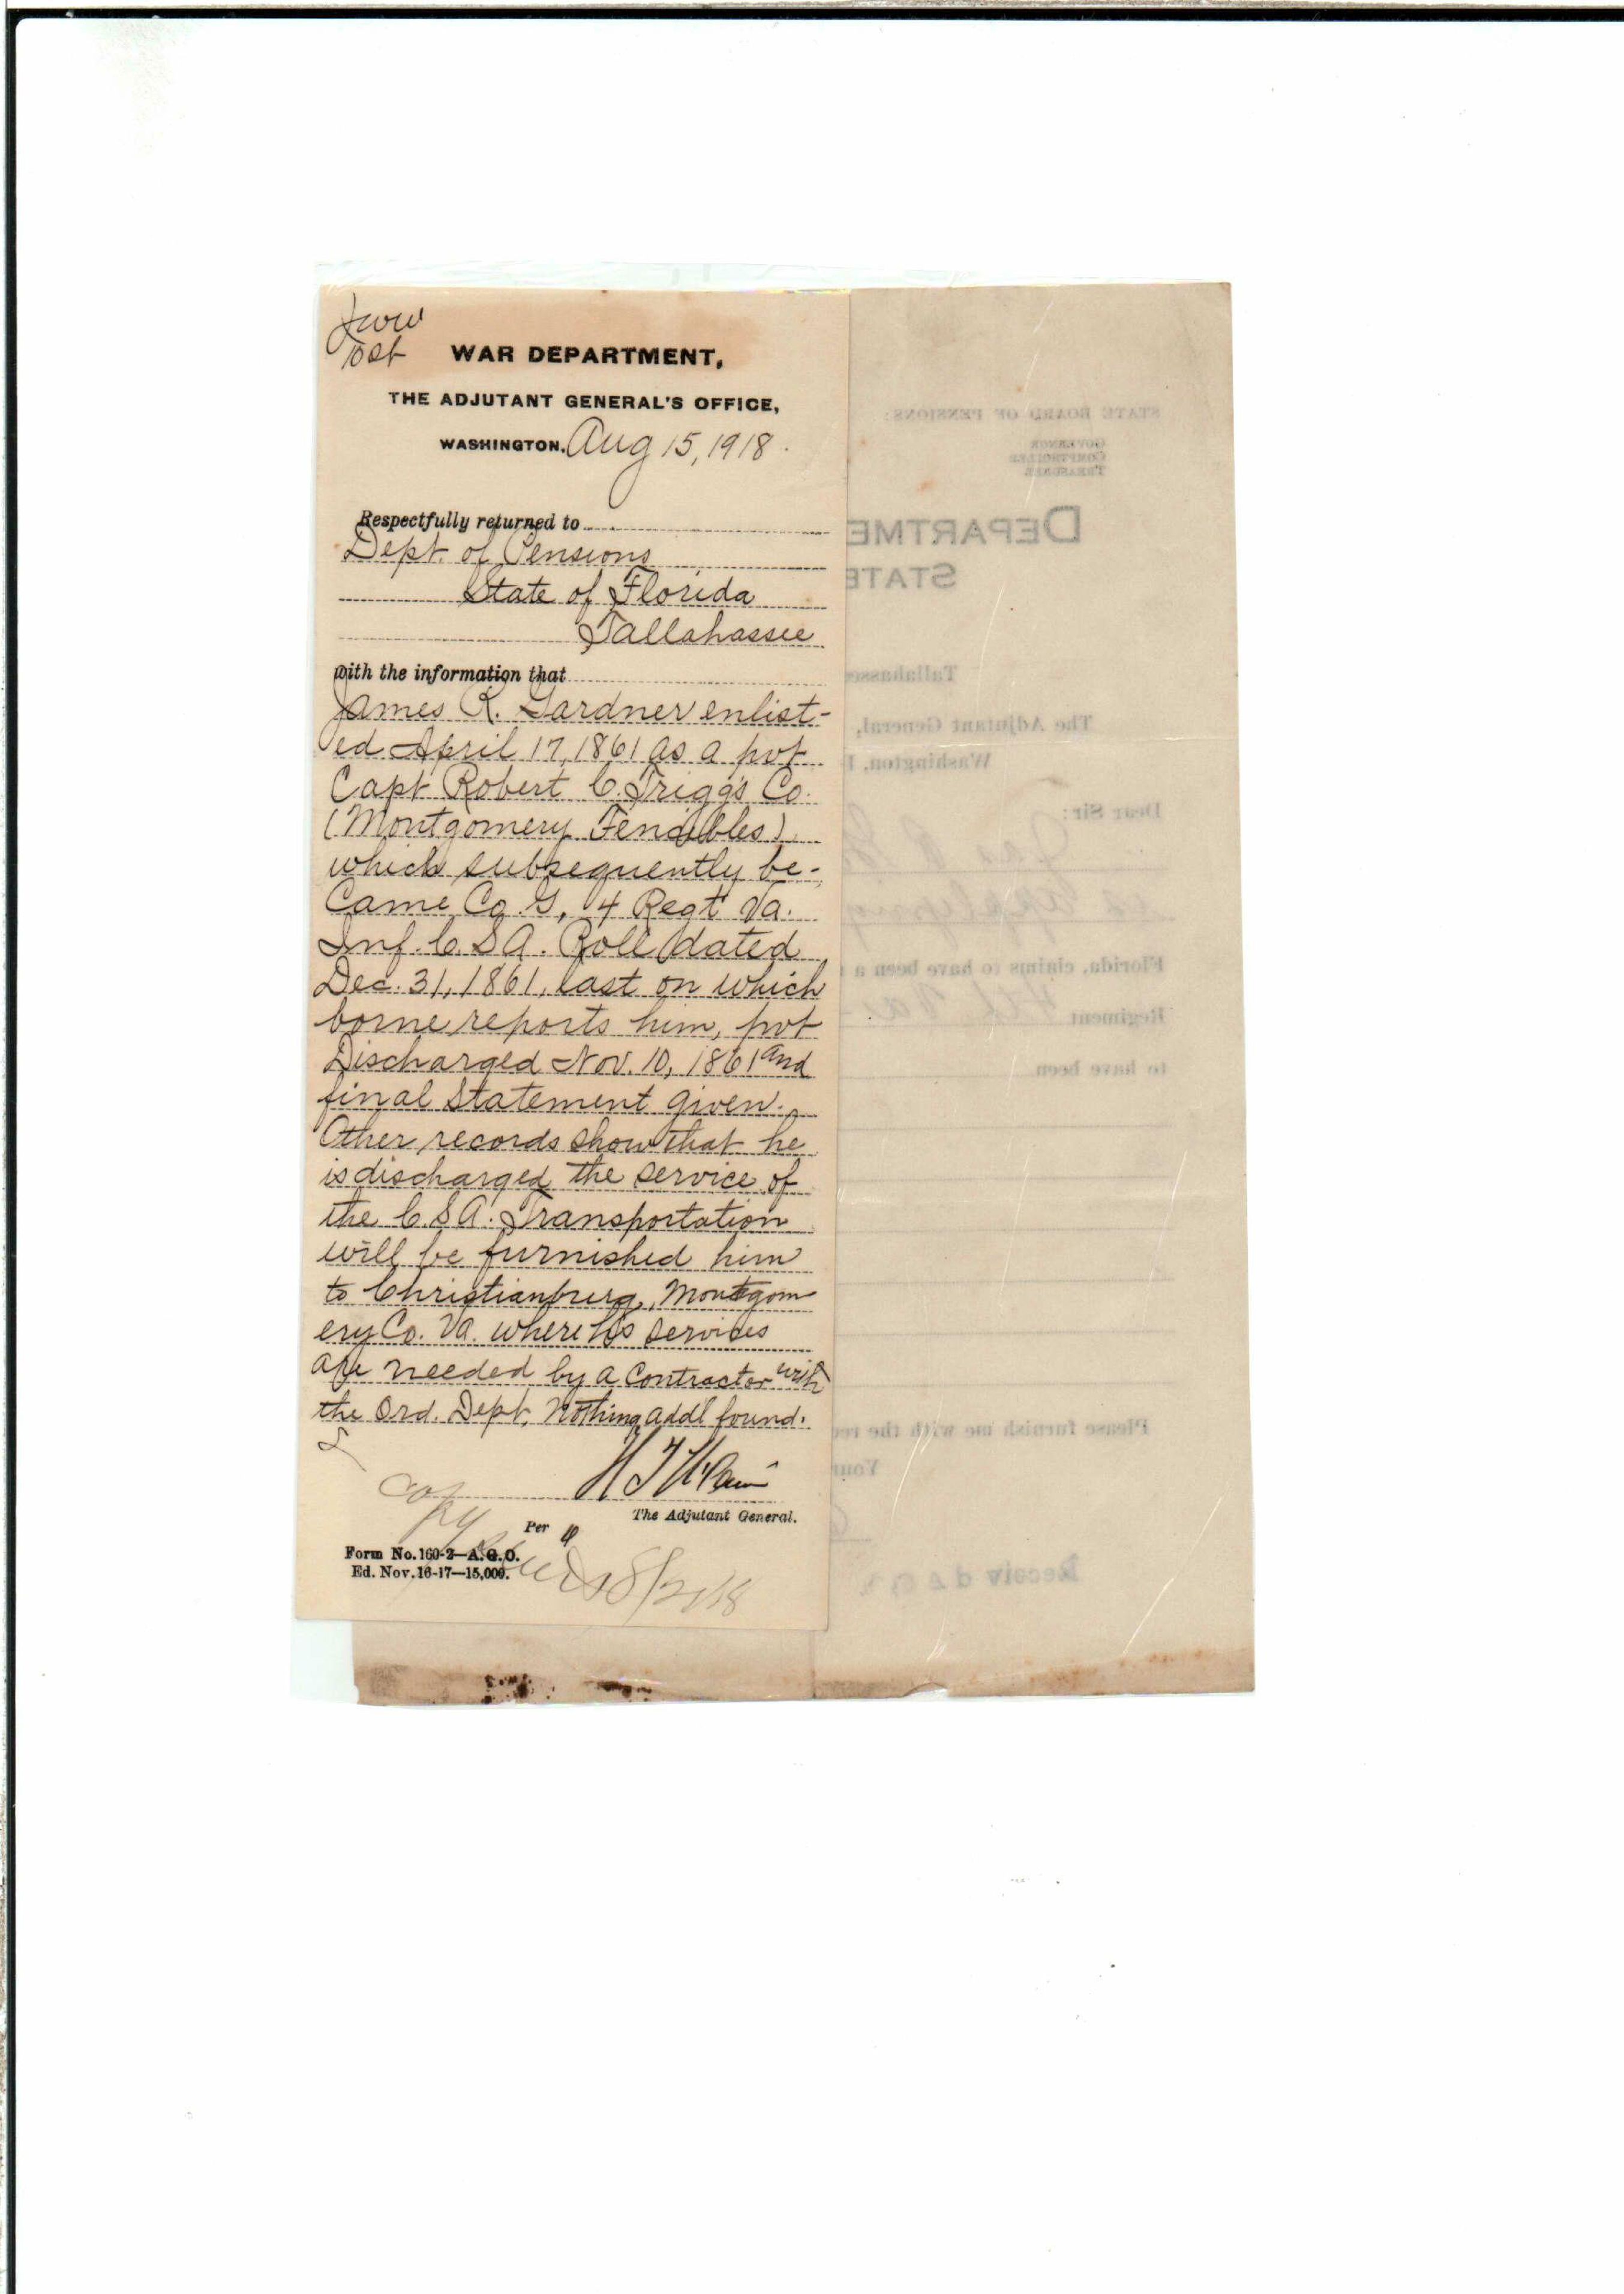 WAR DEPARTMENT,
THE ADJUTANT GENERAL'S OFFICE,
WASHINGTON. Aug 15, 1918.
Respectfully returned to
Dept. of Pensions
State of Florida
Tallahassee
with the information that
James R. Gardner enlist-
ed April 17, 1861 as a pvt
Capt Robert C. Trigg's Co.
(Montgomery Fencibles)
which subsequently be-
came Co. G, 4 Regt Va.
Inf. C.S.A. Roll dated
Dec. 31, 1861, last on which
borne reports him, pvt
Discharged Nov. 10, 1861 and
final statement given.
Other records show that he
is discharged the service of
the C.S.A. Transportation
will be furnished him
to Christianburg, Montgom
ery Co. Va. where his services
are needed by a Contractor with
the Ord. Dept. Nothing addl found.
The Adjutant General.
Copy
Per
Form No. 160-2—A.G.O.
Ed. Nov. 16-17—15,000.
STATE BOARD OF PENSIONS:
GOVERNOR
COMPTROLLER
TREASURER
DEPARTME
STATE
Tallahassee
The Adjutant General,
Washington,
Dear Sir:
Jas R
is applying
Florida, claims to have been a
Regiment 4th Va
to have been
Please furnish me with the rec
Your